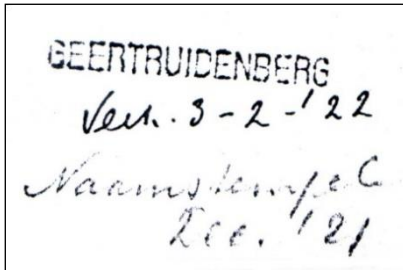 GEERTRUIDENBERG
Verk. 3-2-'22
Naamstempel
Dec. '21